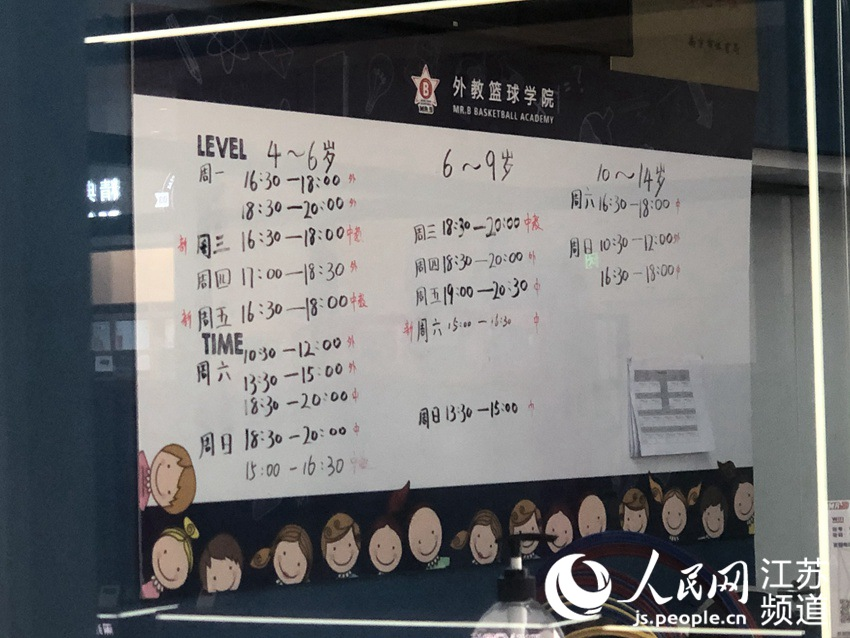 外教篮球学院
MR.B BASKETBALL ACADEMY
B
MR.B
LEVEL 4～6岁
周一 16:30—18:00 外
18:30—20:00 外
新 周三 16:30—18:00 中教
周四 17:00—18:30 外
新 周五 16:30—18:00 中教
TIME
周六 10:30—12:00 外
13:30—15:00 外
18:30—20:00 中
周日 18:30—20:00 中
15:00—16:30 中教
6～9岁
周三 18:30—20:00 中教
周四 18:30—20:00 外
周五 19:00—20:30 中
新 周六 15:00—16:30 中
周日 13:30—15:00 中
10～14岁
周六 16:30—18:00 中
周日 10:30—12:00 外
16:30—18:00 中
人民网 江苏频道
js.people.cn